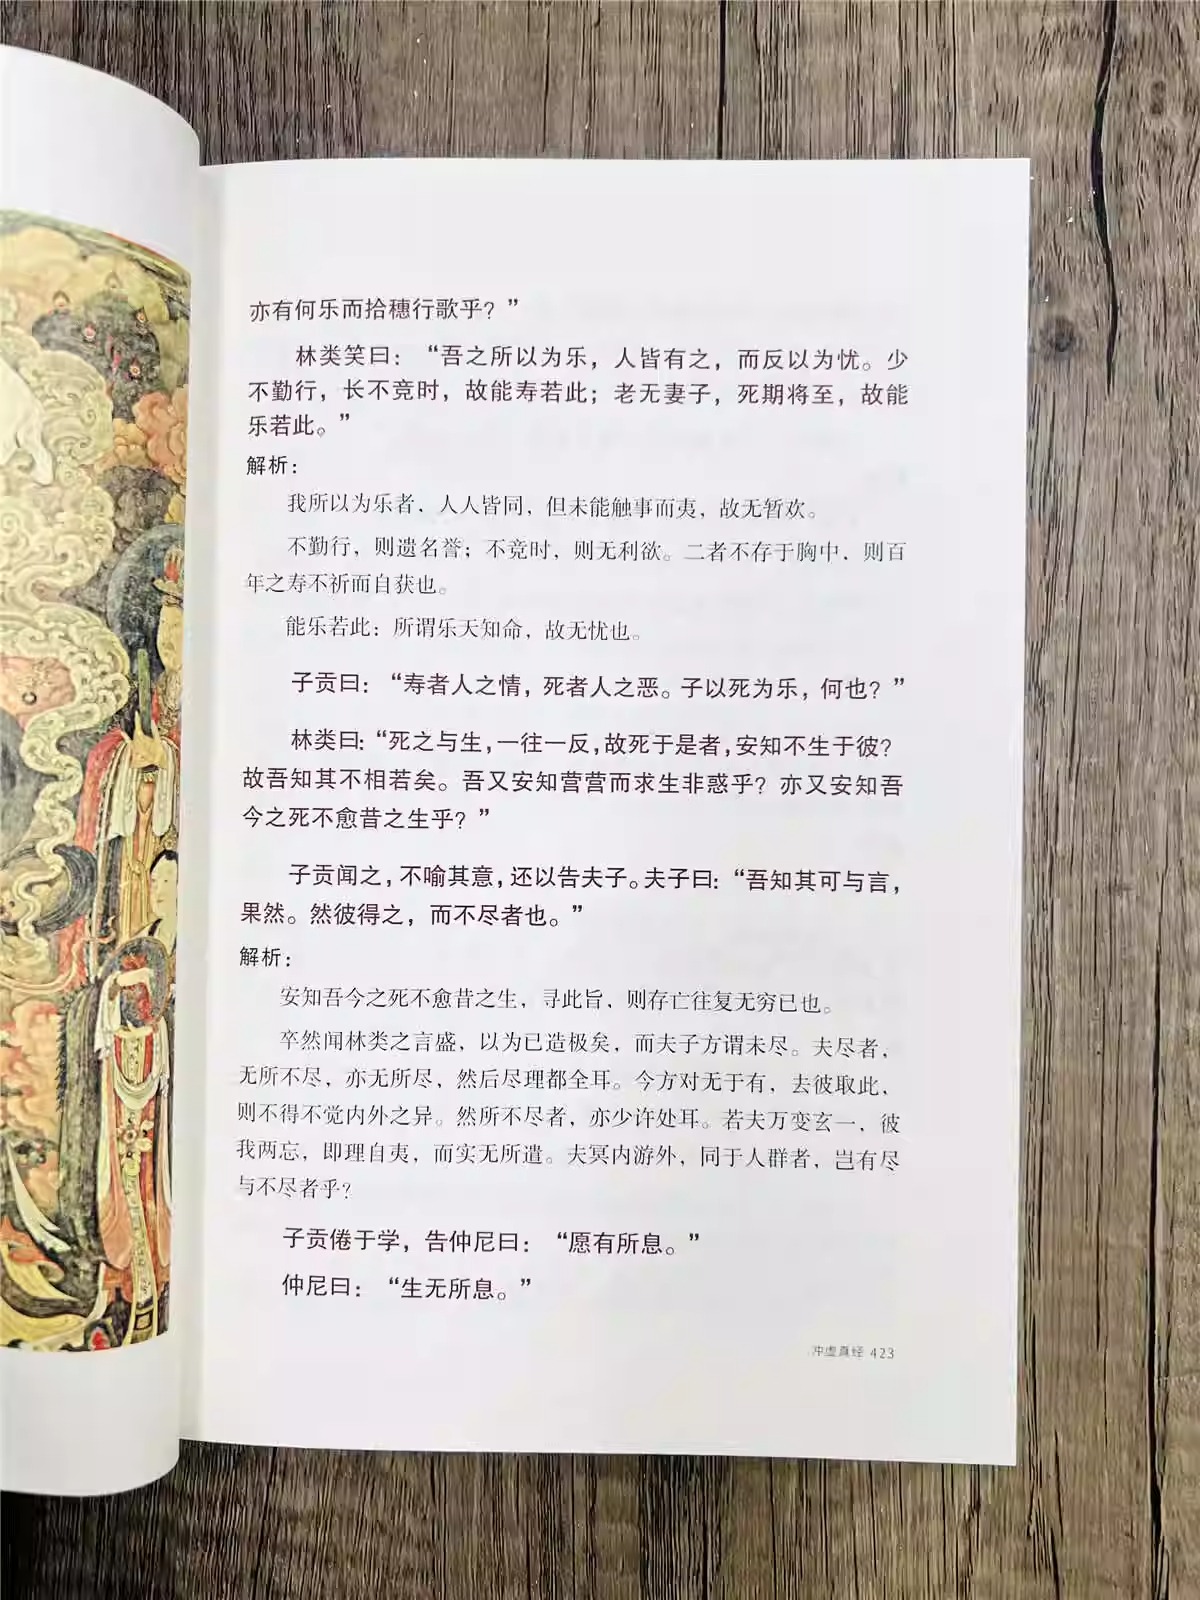 亦有何乐而拾穗行歌乎？”
林类笑曰：“吾之所以为乐，人皆有之，而反以为忧。少
不勤行，长不竞时，故能寿若此；老无妻子，死期将至，故能
乐若此。”
解析：
我所以为乐者，人人皆同，但未能触事而夷，故无暂欢。
不勤行，则遗名誉；不竞时，则无利欲。二者不存于胸中，则百
年之寿不祈而自获也。
能乐若此：所谓乐天知命，故无忧也。
子贡曰：“寿者人之情，死者人之恶。子以死为乐，何也？”
林类曰：“死之与生，一往一反，故死于是者，安知不生于彼？
故吾知其不相若矣。吾又安知营营而求生非惑乎？亦又安知吾
今之死不愈昔之生乎？”
子贡闻之，不喻其意，还以告夫子。夫子曰：“吾知其可与言，
果然。然彼得之，而不尽者也。”
解析：
安知吾今之死不愈昔之生，寻此旨，则存亡往复无穷已也。
卒然闻林类之言盛，以为已造极矣，而夫子方谓未尽。夫尽者，
无所不尽，亦无所尽，然后尽理都全耳。今方对无于有，去彼取此，
则不得不觉内外之异。然所不尽者，亦少许处耳。若夫万变玄一，彼
我两忘，即理自夷，而实无所遣。夫冥内游外，同于人群者，岂有尽
与不尽者乎？
子贡倦于学，告仲尼曰：“愿有所息。”
仲尼曰：“生无所息。”
冲虚真经 423